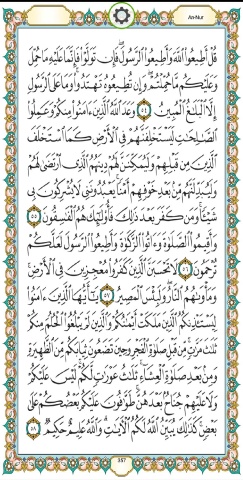 An-Nur
قُلْ أَطِيعُوا۟ ٱللَّهَ وَأَطِيعُوا۟ ٱلرَّسُولَ ۖ فَإِن تَوَلَّوْا۟ فَإِنَّمَا عَلَيْهِ مَا حُمِّلَ
وَعَلَيْكُم مَّا حُمِّلْتُمْ ۖ وَإِن تُطِيعُوهُ تَهْتَدُوا۟ ۚ وَمَا عَلَى ٱلرَّسُولِ
إِلَّا ٱلْبَلَـٰغُ ٱلْمُبِينُ ٥٤ وَعَدَ ٱللَّهُ ٱلَّذِينَ ءَامَنُوا۟ مِنكُمْ وَعَمِلُوا۟
ٱلصَّـٰلِحَـٰتِ لَيَسْتَخْلِفَنَّهُمْ فِى ٱلْأَرْضِ كَمَا ٱسْتَخْلَفَ
ٱلَّذِينَ مِن قَبْلِهِمْ وَلَيُمَكِّنَنَّ لَهُمْ دِينَهُمُ ٱلَّذِى ٱرْتَضَىٰ لَهُمْ
وَلَيُبَدِّلَنَّهُم مِّنۢ بَعْدِ خَوْفِهِمْ أَمْنًا ۚ يَعْبُدُونَنِى لَا يُشْرِكُونَ بِى
شَيْـًٔا ۚ وَمَن كَفَرَ بَعْدَ ذَٰلِكَ فَأُو۟لَـٰٓئِكَ هُمُ ٱلْفَـٰسِقُونَ ٥٥
وَأَقِيمُوا۟ ٱلصَّلَوٰةَ وَءَاتُوا۟ ٱلزَّكَوٰةَ وَأَطِيعُوا۟ ٱلرَّسُولَ لَعَلَّكُمْ
تُرْحَمُونَ ٥٦ لَا تَحْسَبَنَّ ٱلَّذِينَ كَفَرُوا۟ مُعْجِزِينَ فِى ٱلْأَرْضِ ۚ
وَمَأْوَىٰهُمُ ٱلنَّارُ ۖ وَلَبِئْسَ ٱلْمَصِيرُ ٥٧ يَـٰٓأَيُّهَا ٱلَّذِينَ ءَامَنُوا۟
لِيَسْتَـْٔذِنكُمُ ٱلَّذِينَ مَلَكَتْ أَيْمَـٰنُكُمْ وَٱلَّذِينَ لَمْ يَبْلُغُوا۟ ٱلْحُلُمَ مِنكُمْ
ثَلَـٰثَ مَرَّٰتٍ ۚ مِّن قَبْلِ صَلَوٰةِ ٱلْفَجْرِ وَحِينَ تَضَعُونَ ثِيَابَكُم مِّنَ ٱلظَّهِيرَةِ
وَمِنۢ بَعْدِ صَلَوٰةِ ٱلْعِشَآءِ ۚ ثَلَـٰثُ عَوْرَٰتٍ لَّكُمْ ۚ لَيْسَ عَلَيْكُمْ
وَلَا عَلَيْهِمْ جُنَاحٌۢ بَعْدَهُنَّ ۚ طَوَّٰفُونَ عَلَيْكُم بَعْضُكُمْ عَلَىٰ
بَعْضٍ ۚ كَذَٰلِكَ يُبَيِّنُ ٱللَّهُ لَكُمُ ٱلْـَٔايَـٰتِ ۗ وَٱللَّهُ عَلِيمٌ حَكِيمٌ ٥٨
357